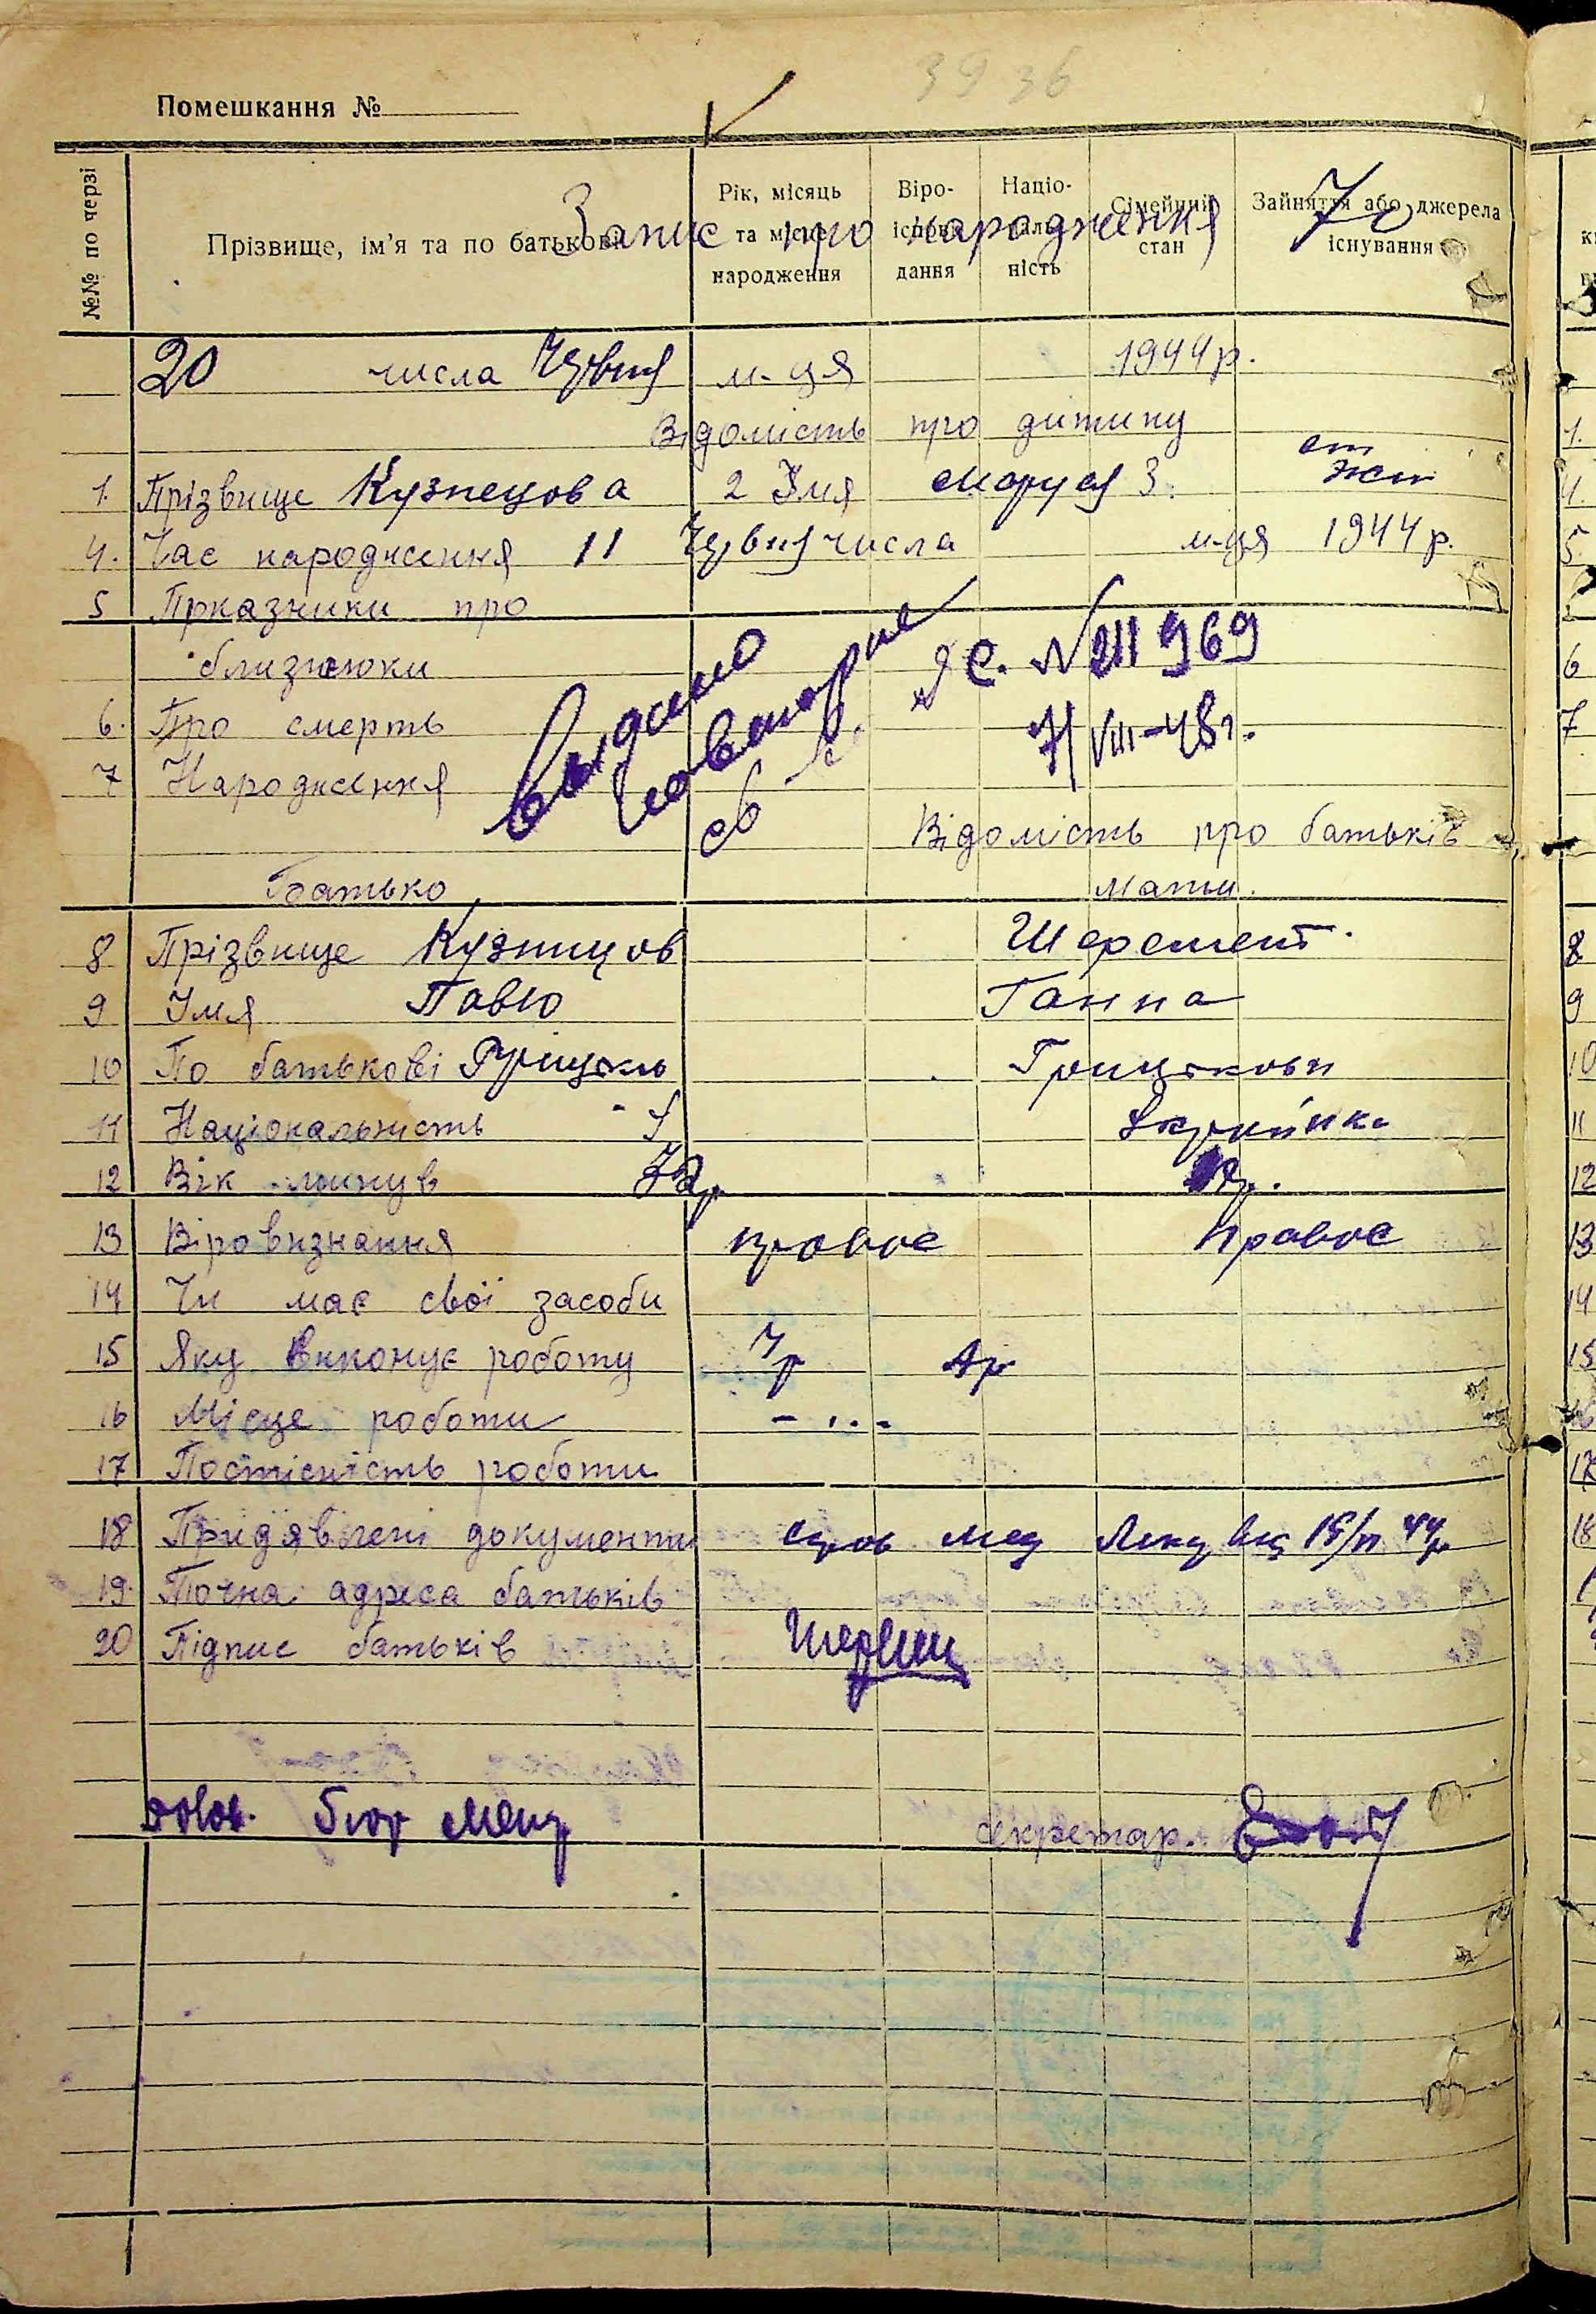 39 36
Помешкання №
№№ по черзі
Прізвище, ім'я та по батькові
Рік, місяць та місце народження
Віро-іспові-дання
Націо-наль-ність
Сімейний стан
Зайняття або джерела існування
Запис про народження 70
20 числа Червня м-ця 1944 р.
Відомість про дитину
1. Прізвище Кузнецова 2 Імя Маруся 3. ст жін
4. Час народження 11 Червня числа м-ця 1944 р.
5 Прказники про
близнюки
6. Про смерть
7 Народження
выдано
повторное
св
ЯС. № 211969
VIII-48г.
Відомість про батьків
Батько мати.
8 Прізвище Кузницов Шеремет
9 Імя Павло Ганна
10 По батькові Грицько
11 Національність У Українка
12 Вік минув р р.
13 Віровизнання правос Правос
14 Чи має свої засоби
15 Яку виконує роботу
16 Місце роботи
17 Постійність роботи
18 Предявлені документи мед 44р
19. Точна адреса батьків
20 Підпис батьків
Голов. Бюр
секретар.